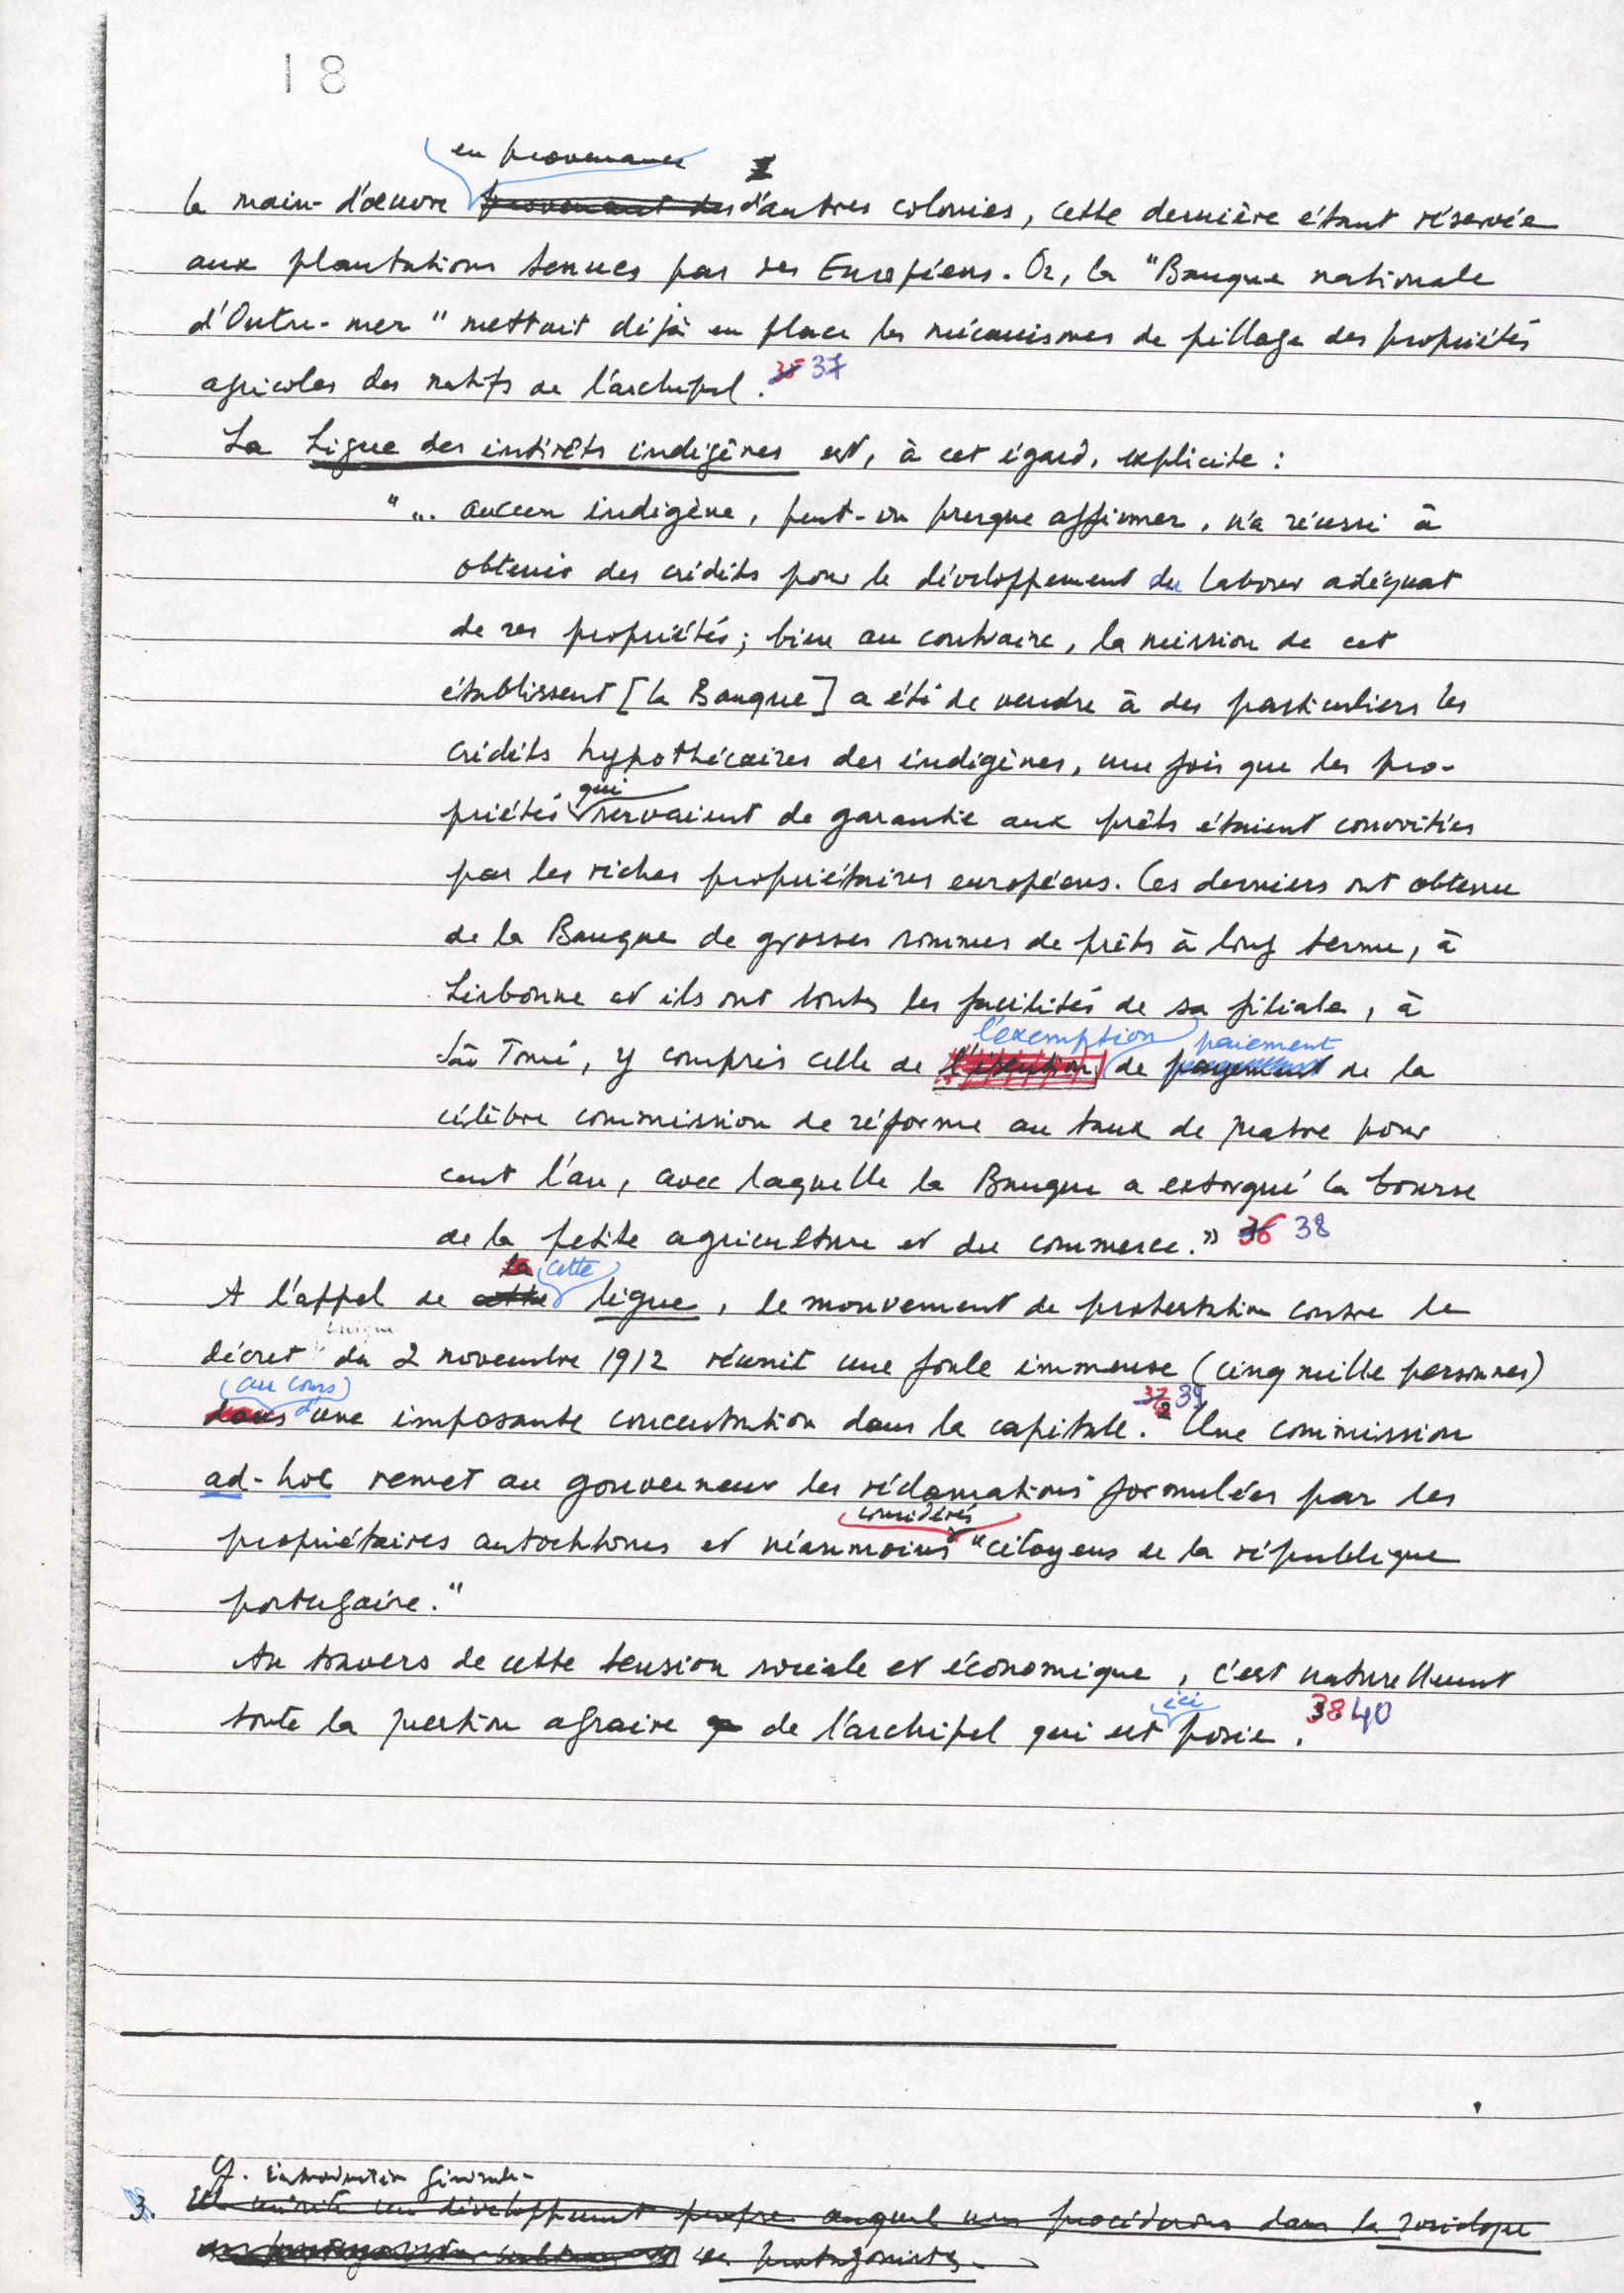 18
en provenance
la main-d'œuvre provenant des d'autres colonies, cette dernière étant réservée
aux plantations tenues par des Européens. Or, la "Banque nationale
d'Outre-mer" mettait déjà en place les mécanismes de pillage des propriétés
agricoles des natifs de l'archipel. 35 37
La Ligue des intérêts indigènes est, à cet égard, explicite :
"... aucun indigène, peut-on presque affirmer, n'a réussi à
obtenir des crédits pour le développement du labour adéquat
de ses propriétés; bien au contraire, la mission de cet
établissent [la Banque] a été de vendre à des particuliers les
crédits hypothécaires des indigènes, une fois que les pro-
qui
priétés servaient de garantie aux prêts étaient convoitées
par les riches propriétaires européens. Ces derniers ont obtenu
de la Banque de grosses sommes de prêts à long terme, à
Lisbonne et ils ont toutes les facilités de sa filiale, à
l'exemption paiement
São Tomé, y compris celle de l'isention de payement de la
célèbre commission de réforme au taux de quatre pour
cent l'an, avec laquelle la Banque a extorqué la bourse
de la petite agriculture et du commerce." 36 38
la cette
A l'appel de cette ligue, le mouvement de protestation contre le
décret du 2 novembre 1912 réunit une foule immense (cinq mille personnes)
au cours 37 39
dans d'une imposante concentration dans la capitale. Une commission
ad-hoc remet au gouverneur les réclamations formulées par les
considérés
propriétaires autochtones et néanmoins "citoyens de la république
portugaise."
Au travers de cette tension sociale et économique, c'est naturellement
ici
toute la question agraire de l'archipel qui est posée. 38 40
Cf. Introduction générale
3. Elle mérite un développement propre auquel nous procéderons dans la sociologie
des protagonistes